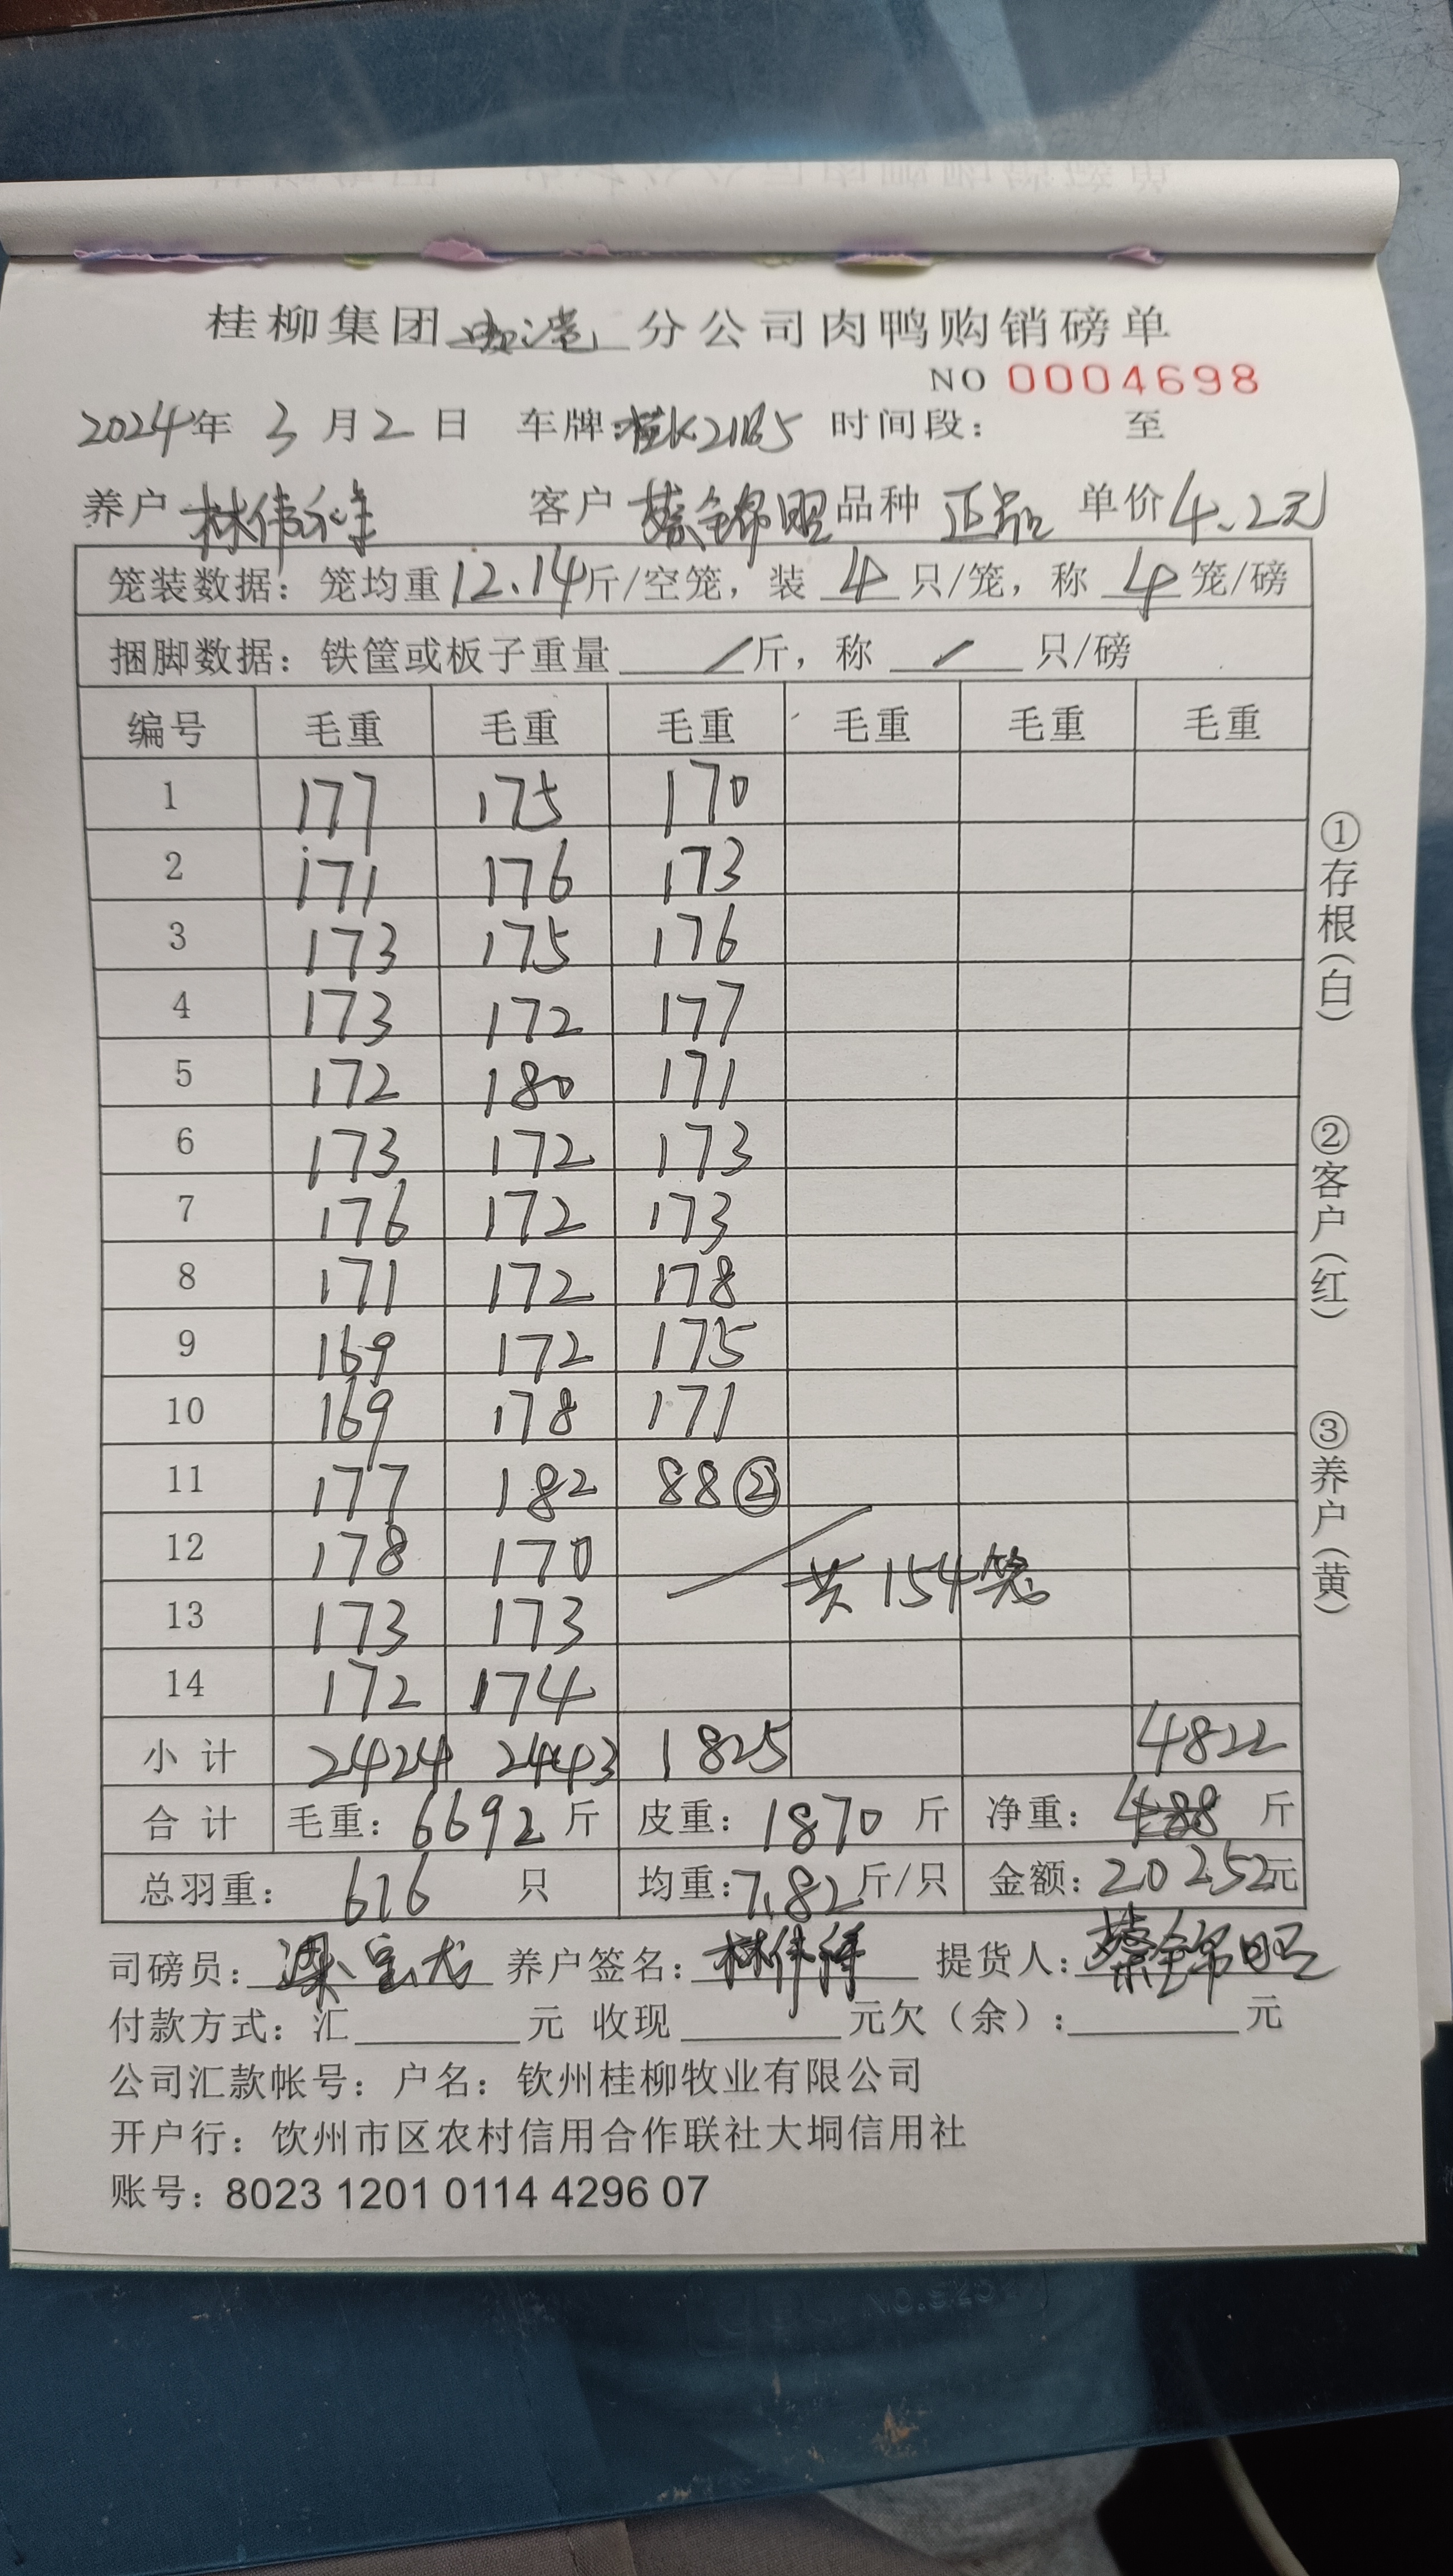 桂柳集团 分公司肉鸭购销磅单
NO 0004698
2024年 3月2日 车牌:桂K21185 时间段: 至
养户 林伟祥 客户 蔡锦旺 品种 正品 单价 4.2元
笼装数据:笼均重12.14斤/空笼,装 4 只/笼,称 4 笼/磅
捆脚数据:铁筐或板子重量 / 斤,称 / 只/磅
编号 毛重 毛重 毛重 毛重 毛重 毛重
1 177 175 170
2 171 176 173
3 173 175 176
4 173 172 177
5 172 180 171
6 173 172 173
7 176 172 173
8 171 172 178
9 169 172 175
10 169 178 171
11 177 182 88②
12 178 170
共154笼
13 173 173
14 172 174
小计 2424 2443 1825 4822
合计 毛重:6692斤 皮重:1870斤 净重:488斤
总羽重:616只 均重:7.82斤/只 金额:20252元
司磅员:梁宝龙 养户签名:林伟祥 提货人:蔡锦旺
付款方式:汇 元 收现 元欠(余): 元
公司汇款帐号:户名:钦州桂柳牧业有限公司
开户行:饮州市区农村信用合作联社大垌信用社
账号:8023 1201 0114 4296 07
①存根(白)
②客户(红)
③养户(黄)